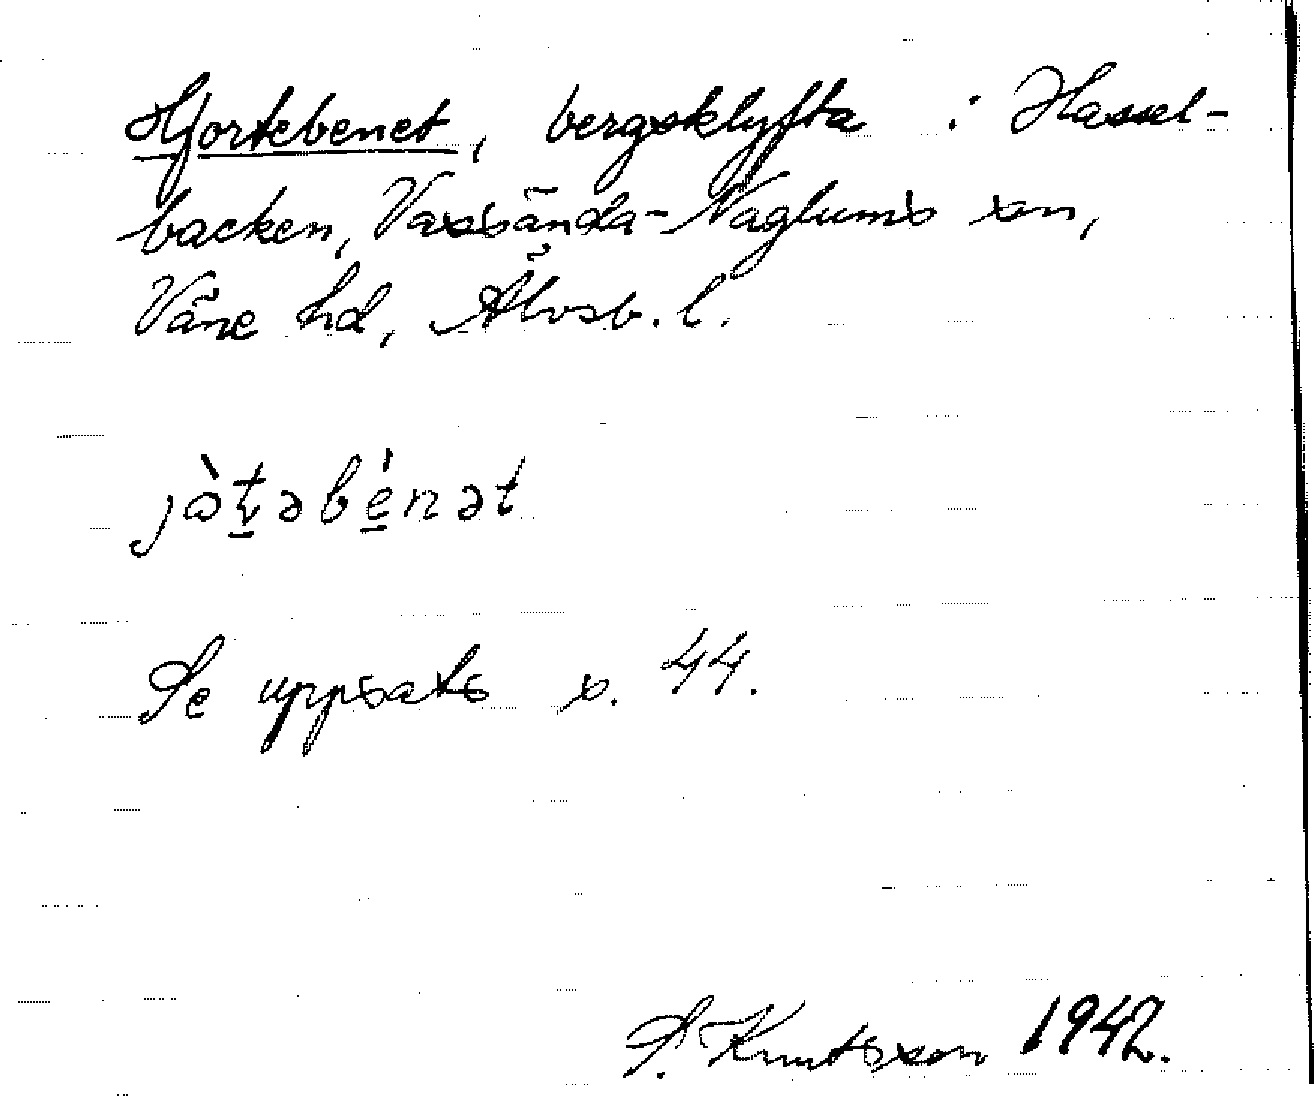 Hjortebenet, bergsklyfta i Hassel-
backen, Vassända-Naglums sn,
Väne hd, Älvsb. l.
jòt̠əbé̠nət
Se uppsats s. 44.
S. Knutsson 1942.